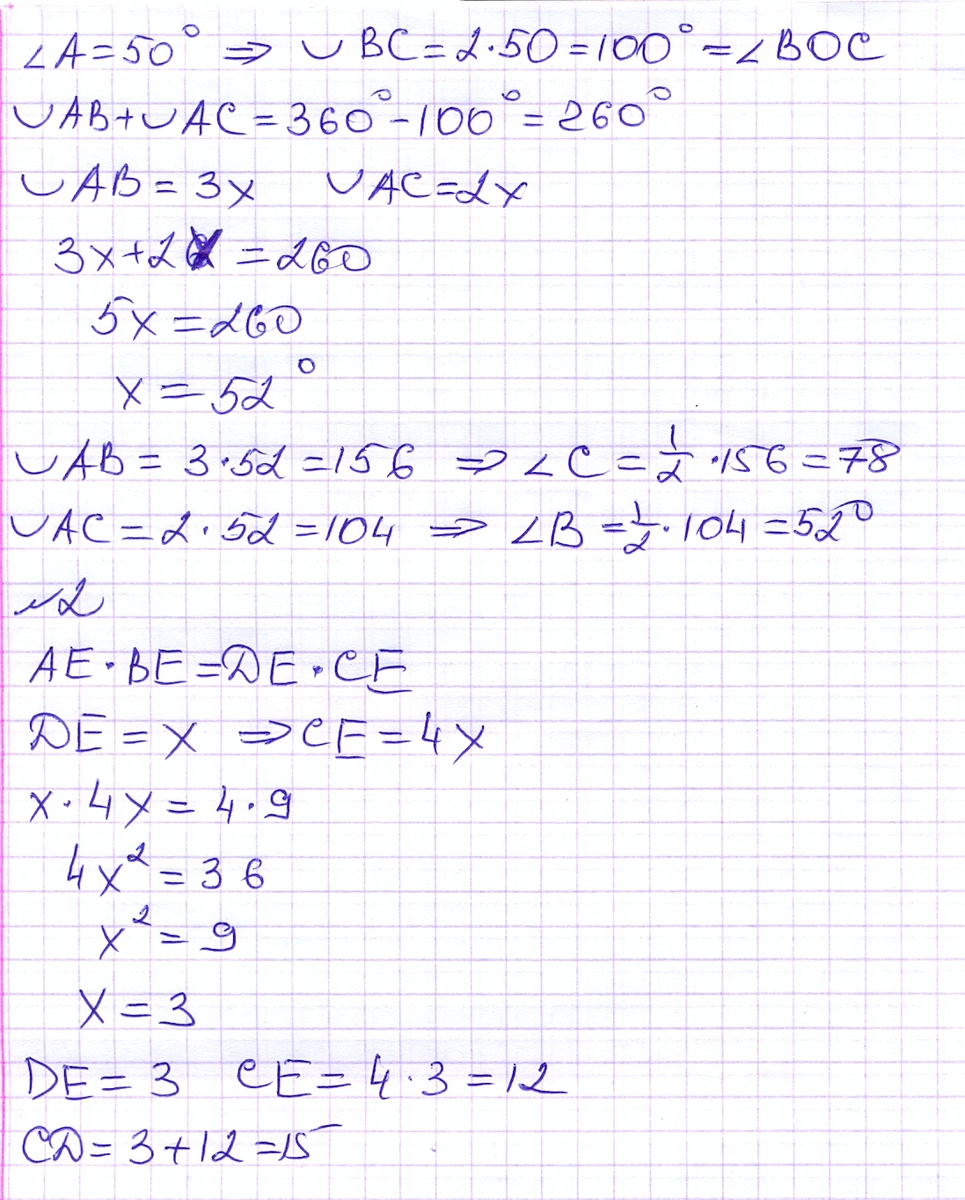 ∠A=50° ⇒ ∪BC=2·50=100°=∠BOC
∪AB+∪AC=360°-100°=260°
∪AB=3x ∪AC=2x
3x+2x=260
5x=260
x=52°
∪AB=3·52=156 ⇒ ∠C=1/2·156=78
∪AC=2·52=104 ⇒ ∠B=1/2·104=52°
№2
AE·BE=DE·CE
DE=x ⇒ CE=4x
x·4x=4·9
4x²=36
x²=9
x=3
DE=3 CE=4·3=12
CD=3+12=15